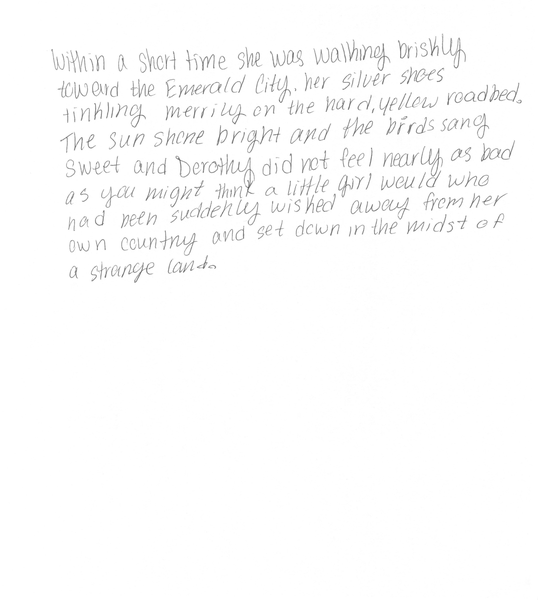 Within a short time she was walking briskly
toward the Emerald City, her silver shoes
tinkling merrily on the hard, yellow roadbed.
The sun shone bright and the birds sang
sweet and Dorothy did not feel nearly as bad
as you might think a little girl would who
had been suddenly wished away from her
own country and set down in the midst of
a strange land.